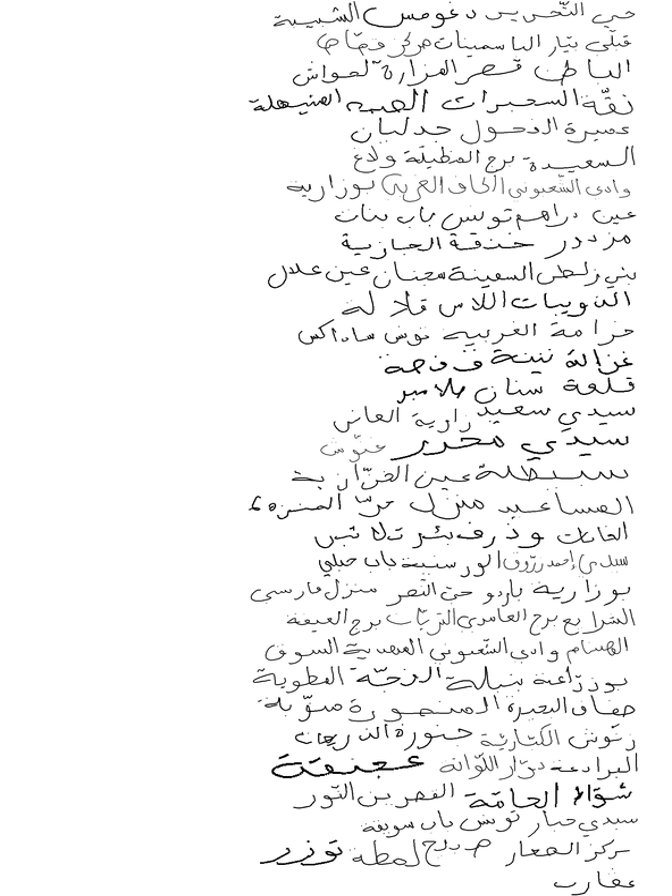 حي التحرير دغومس الشبيبة
قبلي بيّار الياسمينات مركز قصّاص
الباطن قصر المزارة لحواش
نقّة السعيرات المنيهلة
عميرة الفحول جدليان
السعيدة برج المظيلة ولاغ
وادي الشعبوني الحاف الغربي بوزارية
عين دراهم تونس باب بنات
مزدور خنقة الجازية
بني زلطن السفينة سجنان عين علال
الذويبات اللاس قلالة
حزامة الغربية تونس ساراكس
غزالة نينة قفصة
قلعة سنان ملامير
سيدي سعيد زارية العانس
سيدي محرز عنّوش
سبيطلة عين الغزّازية
المساعيد منزل حرّ المنزه 6
الغابات وذرف بئر تلا تبس
سيدي أحمد زرّوق الورسنية باب جبلي
بوزارية باردو حيّ النصر منزل فارسي
الشرايع برج العامري التربّات برج العيفة
الهشام وادي الشعبوني المهدية السوق
بوذرّاعة ببيلة الرخمّة المطوية
ضفاف البحيرة المنصورة منوّبة
زنّوش الكتّارية خنورة الذريعات
البرادعة دوّار اللوّاتة عجنقة
شوّاط الحامّة القصر بن النور
سيدي جبار تونس باب سويقة
مركز الصغار لمطة توزر
عقارب